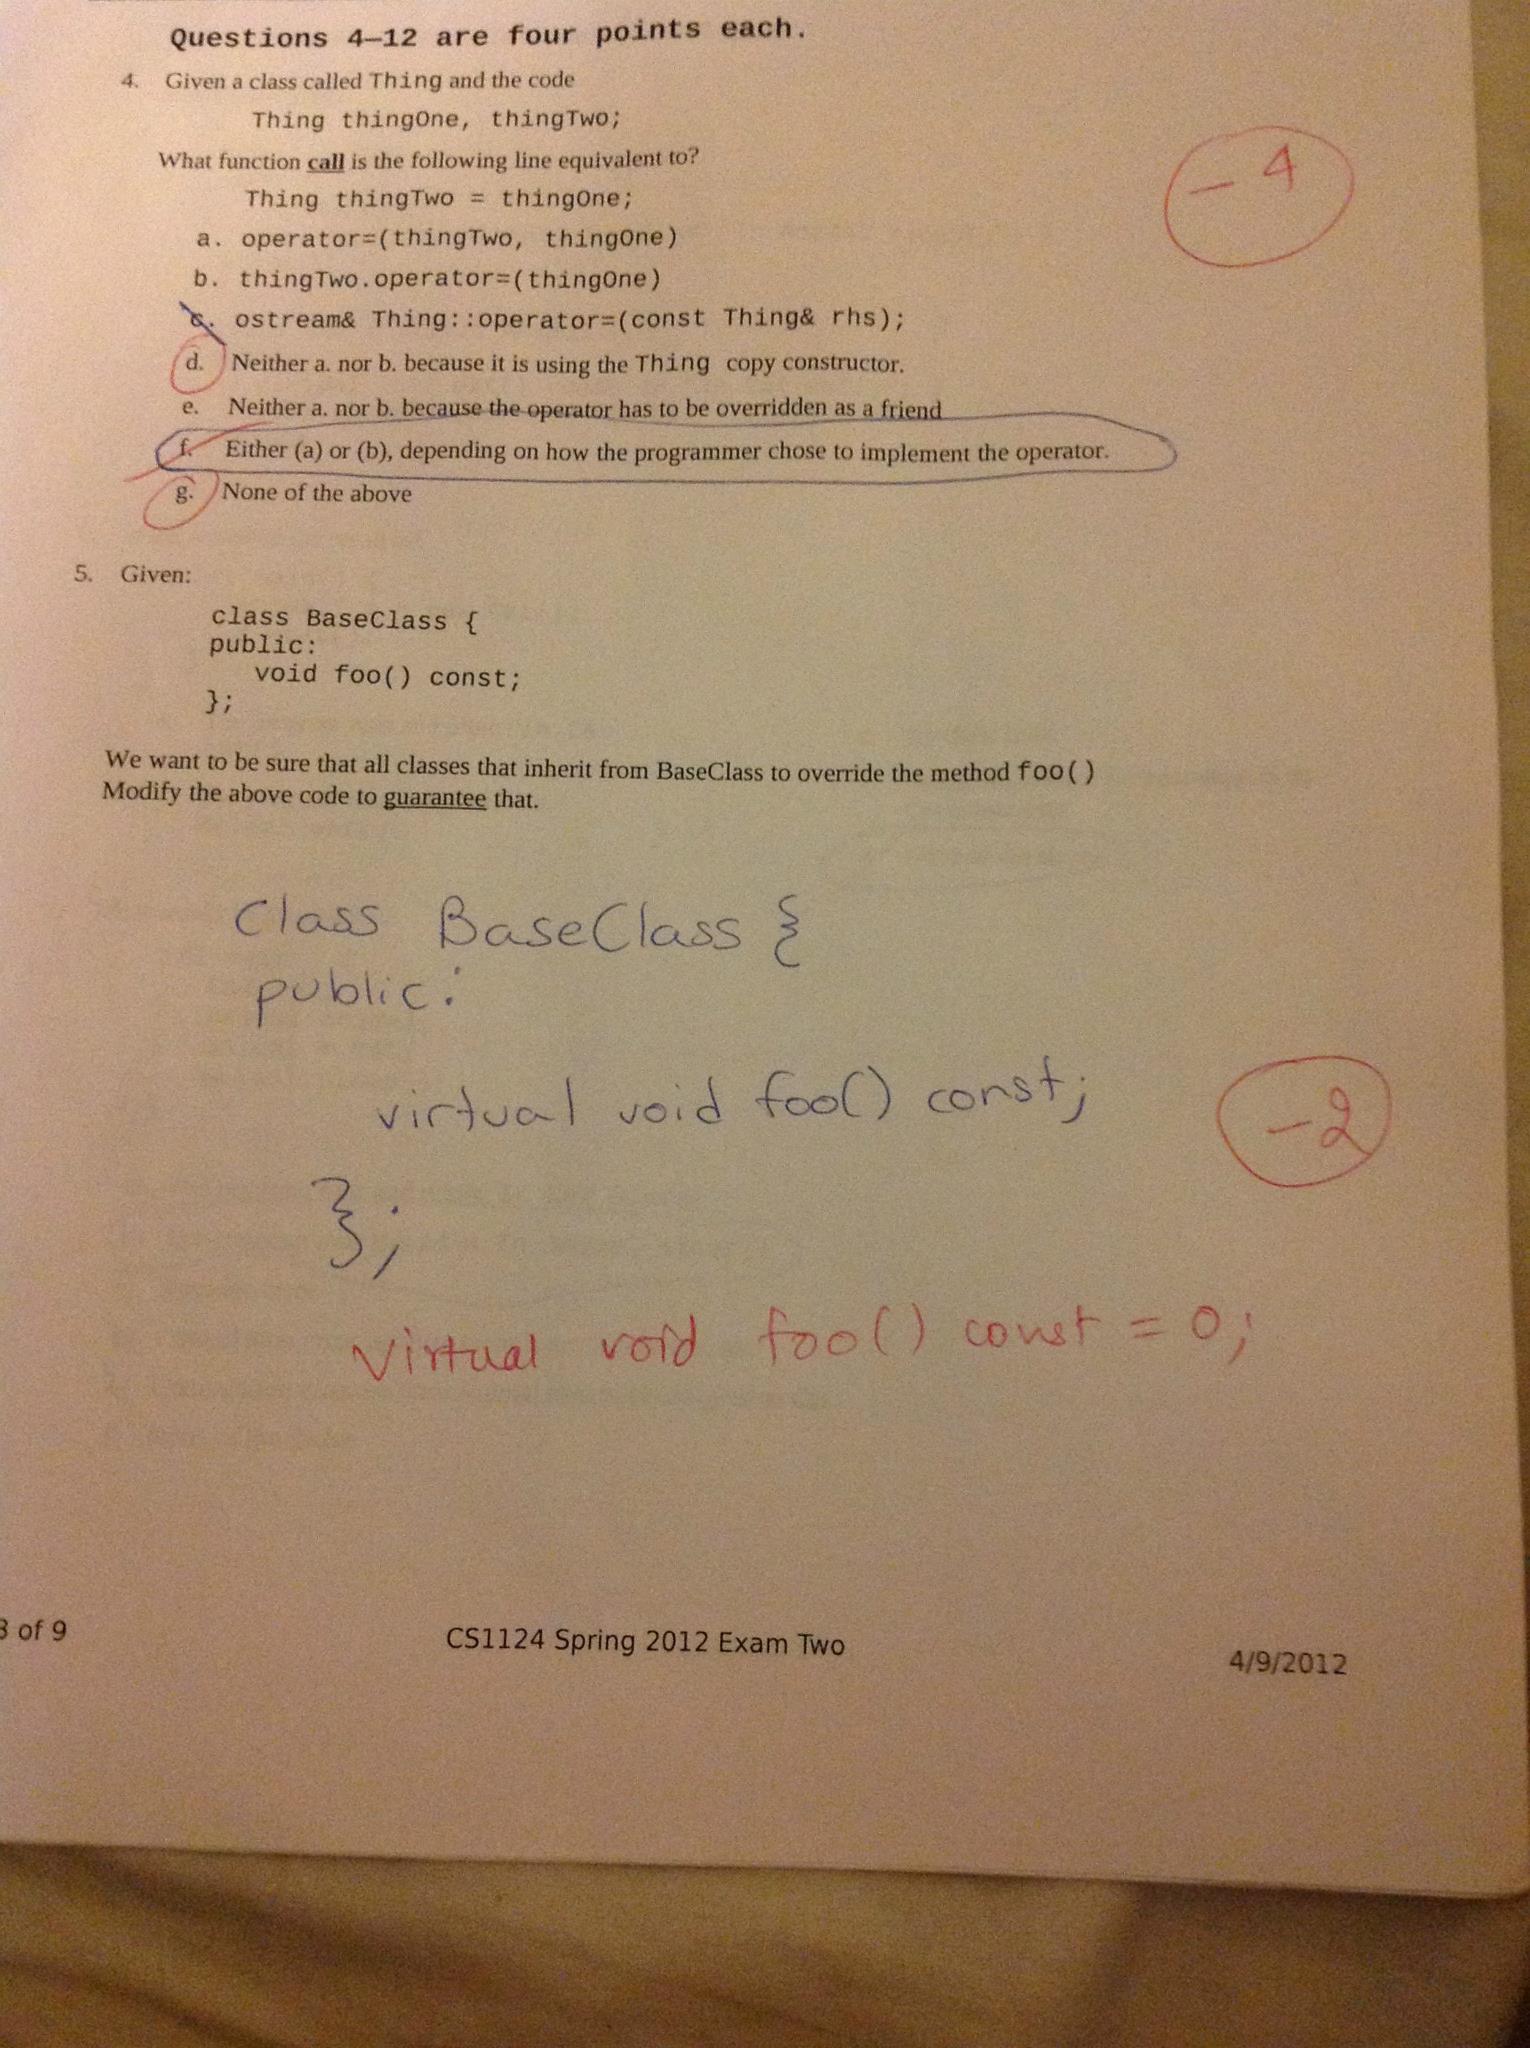 Questions 4–12 are four points each.
4. Given a class called Thing and the code
Thing thingOne, thingTwo;
What function call is the following line equivalent to?
Thing thingTwo = thingOne;
- 4
a. operator=(thingTwo, thingOne)
b. thingTwo.operator=(thingOne)
c. ostream& Thing::operator=(const Thing& rhs);
d. Neither a. nor b. because it is using the Thing copy constructor.
e. Neither a. nor b. because the operator has to be overridden as a friend
f. Either (a) or (b), depending on how the programmer chose to implement the operator.
g. None of the above
5. Given:
class BaseClass {
public:
void foo() const;
};
We want to be sure that all classes that inherit from BaseClass to override the method foo()
Modify the above code to guarantee that.
Class BaseClass {
public:
virtual void foo() const;
-2
};
Virtual void foo() const = 0;
3 of 9
CS1124 Spring 2012 Exam Two
4/9/2012